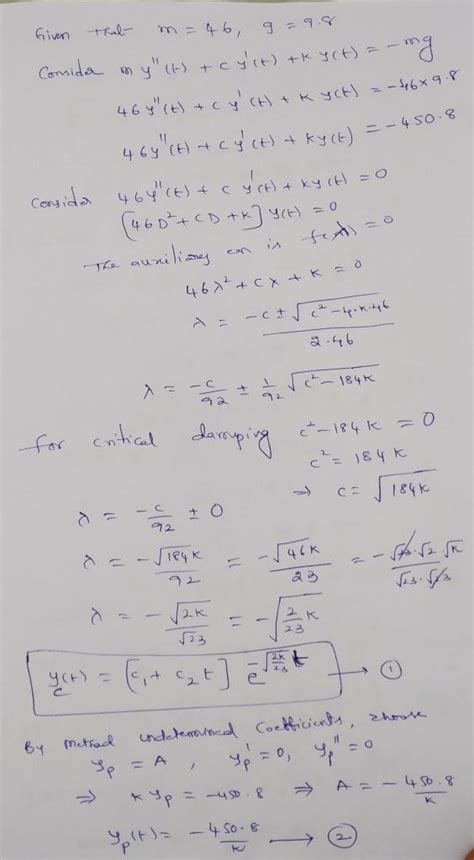 Given that m = 46, g = 9.8
Consider m y''(t) + c y'(t) + k y(t) = -mg
46 y''(t) + c y'(t) + k y(t) = -46 × 9.8
46 y''(t) + c y'(t) + k y(t) = -450.8
Consider 46 y''(t) + c y'(t) + k y(t) = 0
[46D² + CD + K] y(t) = 0
The auxiliary eqn is f(λ) = 0
46λ² + cλ + k = 0
λ = (-c ± √(c² - 4·k·46)) / (2·46)
λ = -c/92 ± 1/92 √(c² - 184k)
for critical damping c² - 184k = 0
c² = 184k
⇒ c = √(184k)
λ = -c/92 ± 0
λ = -√(184k)/92 = -√(46k)/23 = -(√23·√2·√k)/(√23·√23)
λ = -√(2k)/√23 = -√(2/23 k)
y_c(t) = [c₁ + c₂ t] e^(-√(2k/23) t) → ①
By Method undetermined Coefficients, choose
y_p = A, y_p' = 0, y_p'' = 0
⇒ k y_p = -450.8 ⇒ A = -450.8/k
y_p(t) = -450.8/k → ②